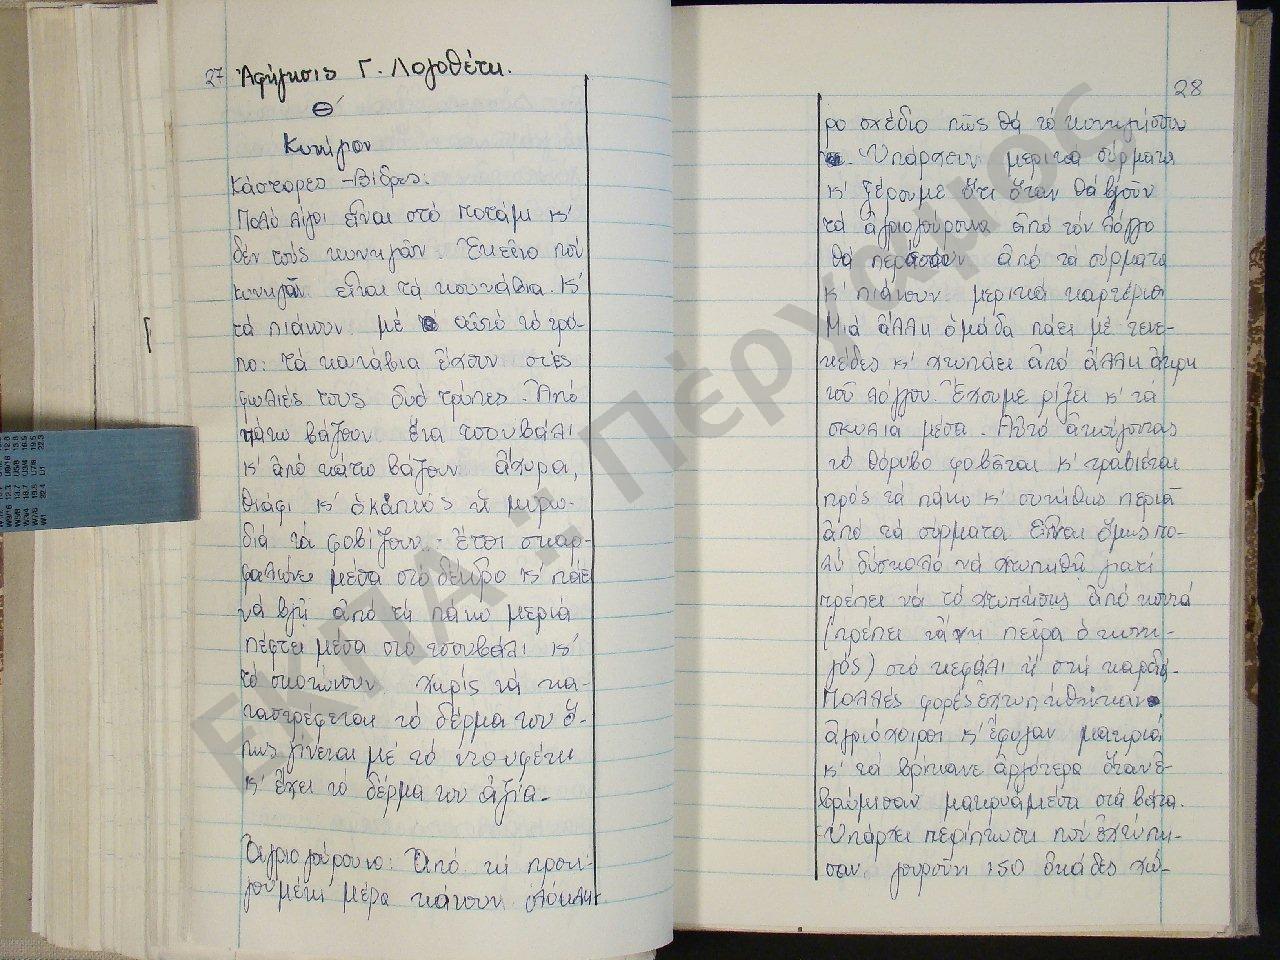 27 Ἀφήγησις Γ. Λογοθέτη.
Θ´
Κυνήγιον
Κάστορες - Βίδρες:
Πολύ λίγοι εἶναι στό ποτάμι κ'
δέν τούς κυνηγᾶν. Ἐκεῖνο πού
κυνηγᾶν εἶναι τά κουνάβια. Κ'
τά πιάνουν μέ αὐτό τό τρό-
πο: τά κουνάβια ἔχουν στίς
φωλιές τους δυό τρύπες. Ἀπό
πάνω βάζουν ἕνα τσουβάλι
κ' ἀπό κάτω βάζουν ἄχυρα,
θιάφι κ' ὁ καπνός κ' ἡ μυρω-
διά τά φοβίζουν. Ἔτσι σκαρ-
φαλώνει μέσα στό δένδρο κ' πάει
νά βγῆ ἀπό τή πάνω μεριά
πέφτει μέσα στό τσουβάλι κ'
τό σκοτώνουν χωρίς νά κα-
ταστρέφεται τό δέρμα του ὅ-
πως γίνεται μέ τό ντουφέκι
κ' ἔχει τό δέρμα του ἀξία.
Ἀγριογούρουνο: Ἀπό τή προη-
γούμενη μέρα κάνουν ὁλόκλη-
28
ρο σχέδιο πῶς θά τό κυνηγήσουν
Ὑπάρχουν μερικά σύρματα
κ' ξέρουμε ὅτι ὅταν θά βγοῦν
τά ἀγριογούρουνα ἀπό τόν λόγγο
θά περάσουν ἀπό τά σύρματα
κ' πιάνουν μερικά καρτέρια
Μιά ἄλλη ὁμάδα πάει μέ τενε-
κέδες κ' χτυπάει ἀπό ἄλλη ἄκρη
τοῦ λόγγου. Ἔχουμε ρίξει κ' τά
σκυλιά μέσα. Αὐτό ἀκούγοντας
τό θόρυβο φοβᾶται κ' τραβιέται
πρός τά πάνω κ' συνήθως περνᾶ
ἀπό τά σύρματα. Εἶναι ὅμως πο-
λύ δύσκολο νά χτυπηθῆ γιατί
πρέπει νά τό χτυπήσης ἀπό κοντά
(πρέπει νἄχη πεῖρα ὁ κυνη-
γός) στό κεφάλι ἤ στή καρδιά.
Πολλές φορές ἐχτυπηθήκαν
ἀγριόχοιροι κ' ἔφυγαν μακριά
κ' τά βρήκανε ἀργότερα ὅταν ἐ-
βρώμισαν μακρυά μέσα στά βάτα.
Ὑπάρχει περίπτωση πού ἐχτύπη-
σαν γουρούνι 150 ὀκάδες χω-
ΕΚΠΑ: Πέργαμος